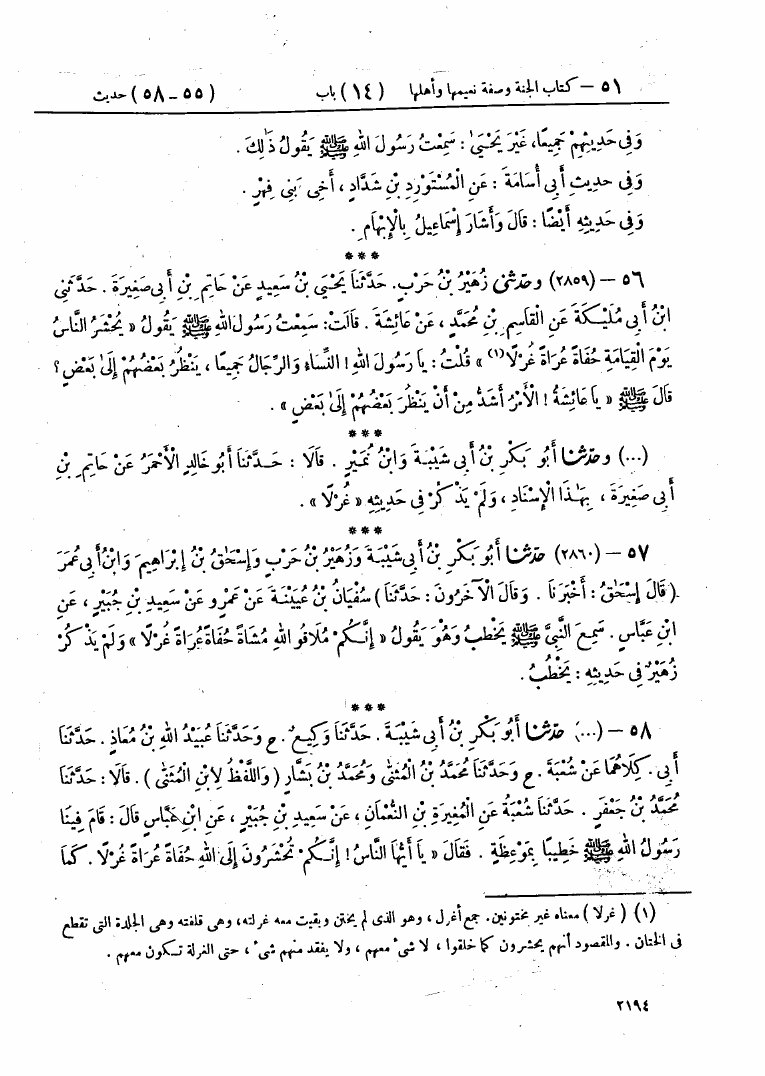 ٥١ – كتاب الجنة وصفة نعيمها وأهلها (١٤) باب (٥٥ – ٥٨) حديث
وَفِى حَدِيثِهِمْ جَمِيعًا، غَيْرَ يَحْيَىٰ : سَمِعْتُ رَسُولَ اللهِ ﷺ يَقُولُ ذَٰلِكَ .
وَفِى حديثِ أَبِى أُسَامَةَ : عَنِ الْمُسْتَوْرِدِ بْنِ شَدَّادٍ ، أَخِى بَنِى فِهْرٍ .
وَفِى حَدِيثِهِ أَيْضًا : قَالَ وَأَشَارَ إِسْمَاعِيلُ بِالْإِبْهَامِ .
***
٥٦ – (٢٨٥٩) وحَدَّثَنِى زُهَيْرُ بْنُ حَرْبٍ. حَدَّثَنَا يَحْيَى بْنُ سَعِيدٍ عَنْ حَاتِمِ بْنِ أَبِى صَغِيرَةَ . حَدَّثَنِى
ابْنُ أَبِى مُلَيْكَةَ عَنِ الْقَاسِمِ بْنِ مُحَمَّدٍ ، عَنْ عَائِشَةَ . قَالَتْ: سَمِعْتُ رَسُولَ اللهِ ﷺ يَقُولُ « يُحْشَرُ النَّاسُ
يَوْمَ الْقِيَامَةِ حُفَاةً عُرَاةً غُرْلًا(١) » قُلْتُ : يَا رَسُولَ اللهِ ! النِّسَاءُ وَالرِّجَالُ جَمِيعًا ، يَنْظُرُ بَعْضُهُمْ إِلَىٰ بَعْضٍ ؟
قَالَ ﷺ « يَا عَائِشَةُ ! الْأَمْرُ أَشَدُّ مِنْ أَنْ يَنْظُرَ بَعْضُهُمْ إِلَىٰ بَعْضٍ » .
***
(...) وحَدَّثَنَا أَبُو بَكْرِ بْنُ أَبِى شَيْبَةَ وَابْنُ نُمَيْرٍ . قَالَا : حَدَّثَنَا أَبُو خَالِدٍ الْأَحْمَرُ عَنْ حَاتِمِ بْنِ
أَبِى صَغِيرَةَ ، بِهَـٰذَا الْإِسْنَادِ ، وَلَمْ يَذْكُرْ فِى حَدِيثِهِ « غُرْلًا » .
***
٥٧ – (٢٨٦٠) حَدَّثَنَا أَبُو بَكْرِ بْنُ أَبِى شَيْبَةَ وَزُهَيْرُ بْنُ حَرْبٍ وَإِسْحَٰقُ بْنُ إِبْرَاهِيمَ وَابْنُ أَبِى عُمَرَ
( قَالَ إِسْحَٰقُ : أَخْبَرَنَا . وَقَالَ الْآخَرُونَ : حَدَّثَنَا ) سُفْيَانُ بْنُ عُيَيْنَةَ عَنْ عَمْرٍو عَنْ سَعِيدِ بْنِ جُبَيْرٍ ، عَنِ
ابْنِ عَبَّاسٍ . سَمِعَ النَّبِىَّ ﷺ يَخْطُبُ وَهُوَ يَقُولُ « إِنَّكُمْ مُلَاقُو اللهِ مُشَاةً حُفَاةً عُرَاةً غُرْلًا » وَلَمْ يَذْكُرْ
زُهَيْرٌ فِى حَدِيثِهِ : يَخْطُبُ .
***
٥٨ – (...) حَدَّثَنَا أَبُو بَكْرِ بْنُ أَبِى شَيْبَةَ . حَدَّثَنَا وَكِيعٌ . ح وَحَدَّثَنَا عُبَيْدُ اللهِ بْنُ مُعَاذٍ . حَدَّثَنَا
أَبِى . كِلَاهُمَا عَنْ شُعْبَةَ . ح وَحَدَّثَنَا مُحَمَّدُ بْنُ الْمُثَنَّىٰ وَمُحَمَّدُ بْنُ بَشَّارٍ ( وَاللَّفْظُ لِابْنِ الْمُثَنَّىٰ ) . قَالَا : حَدَّثَنَا
مُحَمَّدُ بْنُ جَعْفَرٍ . حَدَّثَنَا شُعْبَةُ عَنِ الْمُغِيرَةِ بْنِ النُّعْمَانِ ، عَنْ سَعِيدِ بْنِ جُبَيْرٍ ، عَنِ ابْنِ عَبَّاسٍ قَالَ : قَامَ فِينَا
رَسُولُ اللهِ ﷺ خَطِيبًا بِمَوْعِظَةٍ . فَقَالَ « يَا أَيُّهَا النَّاسُ ! إِنَّكُمْ تُحْشَرُونَ إِلَى اللهِ حُفَاةً عُرَاةً غُرْلًا . كَمَا
(١) ( غرلا ) معناه غير مختونين. جمع أغرل ، وهو الذى لم يختن وبقيت معه غرلته، وهى قلفته وهى الجلدة التى تقطع
فى الختان . والمقصود أنهم يحشرون كما خلقوا ، لا شىء معهم ، ولا يفقد منهم شىء ، حتى الغرلة تكون معهم .
٢١٩٤